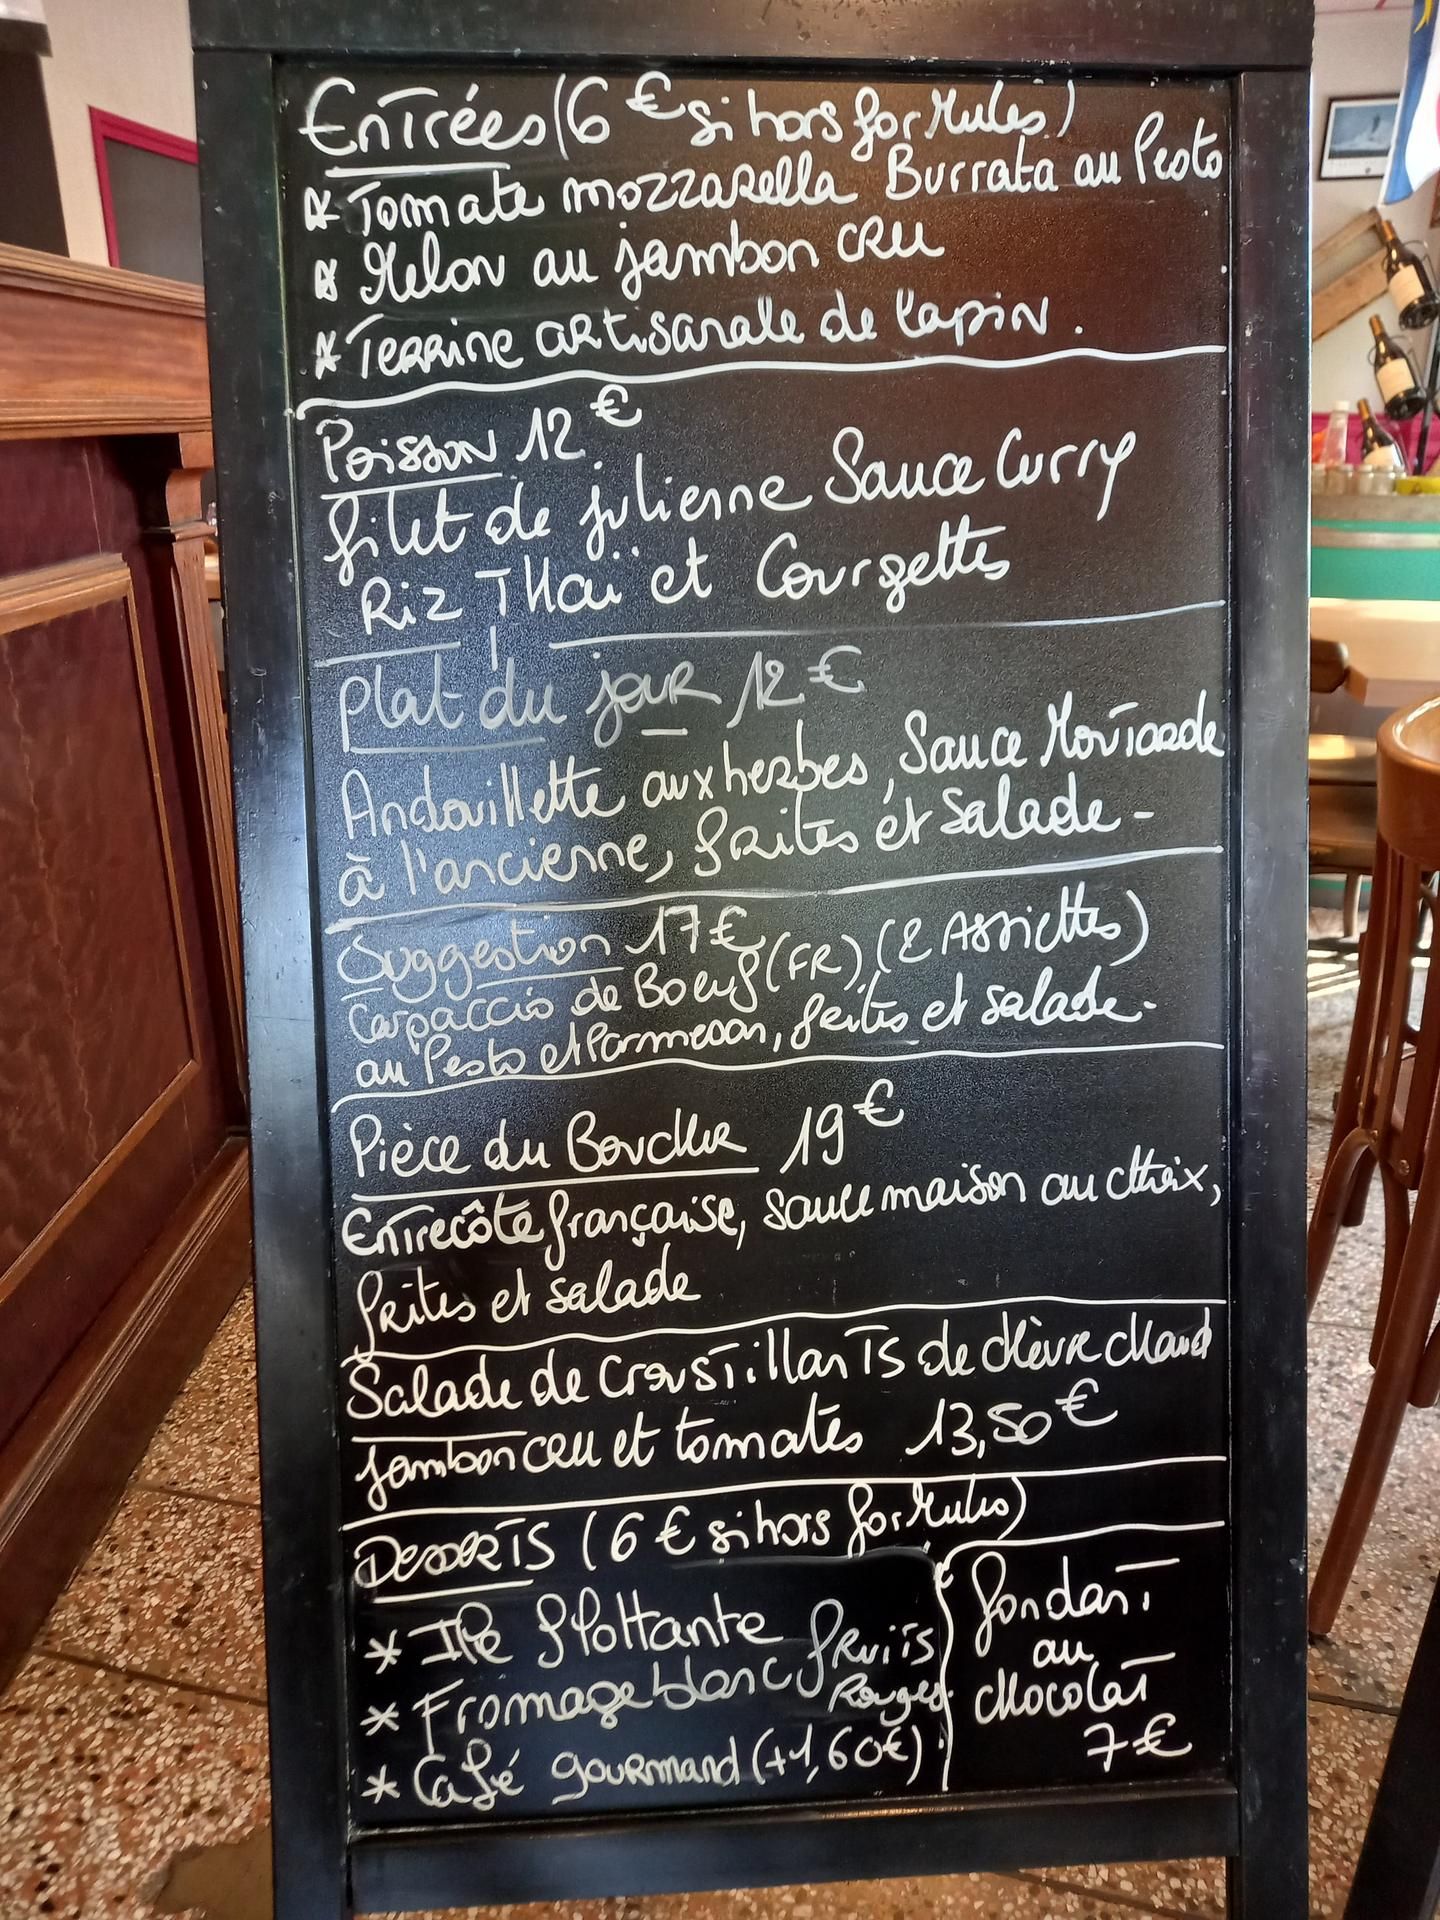 Entrées (6 € si hors formules)
* Tomate mozzarella Burrata au Pesto
* Melon au jambon cru
* Terrine artisanale de lapin.
Poisson 12 €
filet de julienne Sauce Curry
Riz Thaï et Courgettes
Plat du jour 12 €
Andouillette aux herbes, Sauce Moutarde
à l'ancienne, frites et Salade -
Suggestion 17 €
Carpaccio de Boeuf (FR) (2 Assiettes)
au Pesto et Parmesan, frites et salade -
Pièce du Boucher 19 €
Entrecôte française, sauce maison au choix,
frites et salade
Salade de Croustillants de chèvre chaud
jambon cru et tomates 13,50 €
Desserts (6 € si hors formules)
* Ile flottante
* Fromage blanc fruits
Rouges.
* Café gourmand (+1,60€).
fondant
au
chocolat
7 €